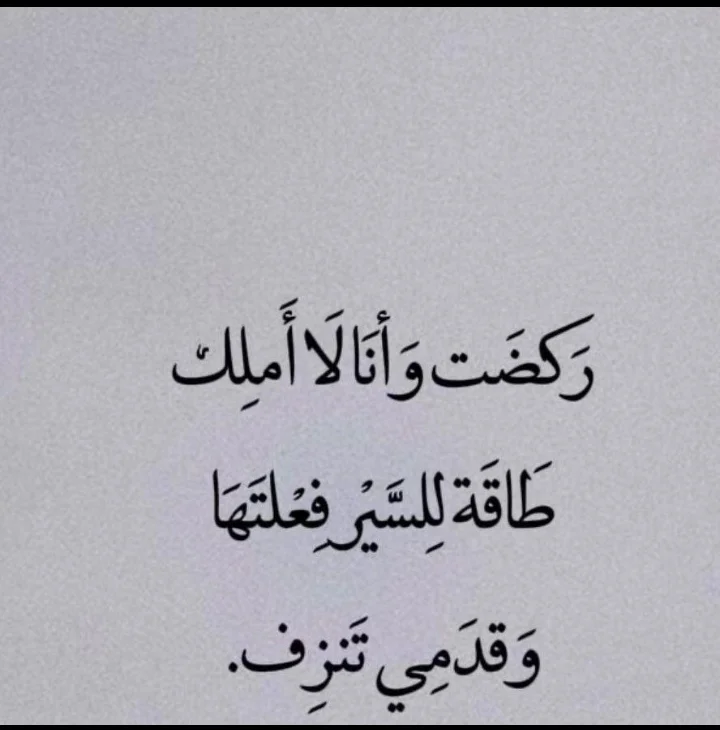 رَكضَت وَأنَا لَا أَملِك
طَاقَة لِلسَّيْر فِعْلتَهَا
وَقدَمِي تَنزِف.